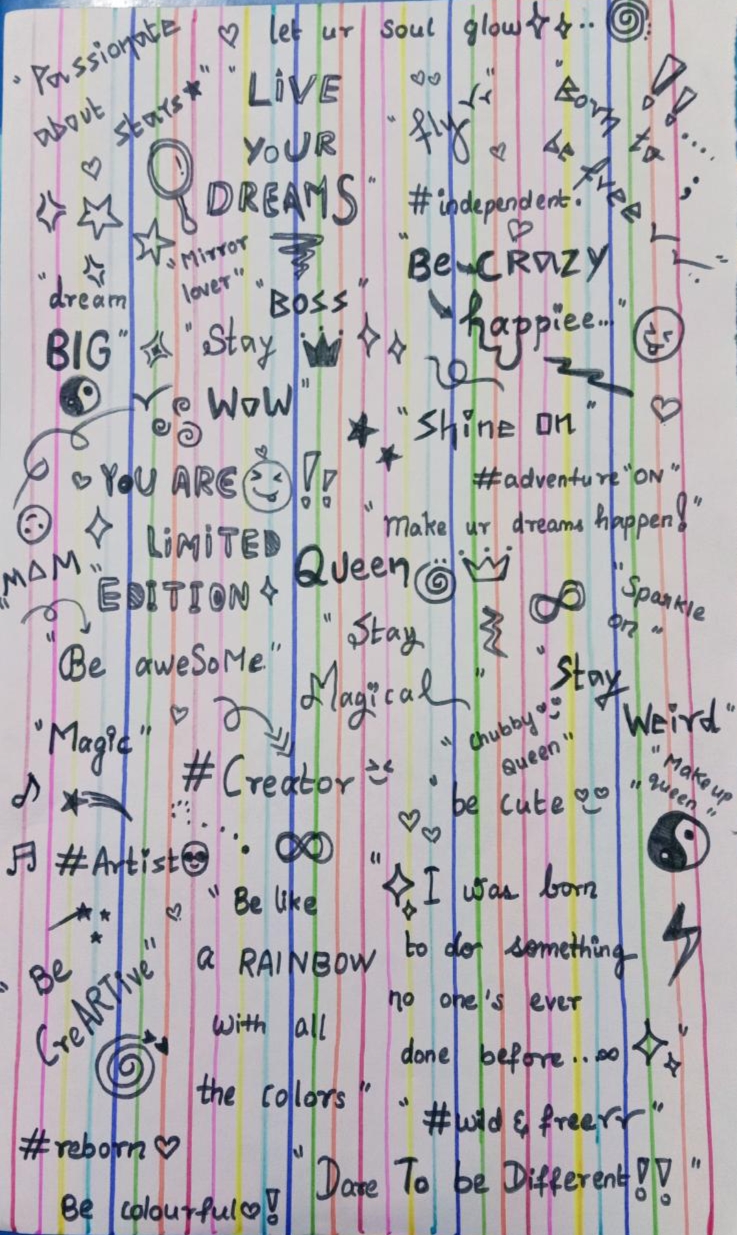 let ur soul glow
"Passionate
about stars"
"LiVE
YOUR
DREAMS"
"fly"
"Born to
be free
#independent.
"Mirror
lover"
"Be CRAZY
happiee..."
"dream
BIG"
"BOSS"
"Stay
WOW"
"Shine ON"
YOU ARE !!
LiMiTED
EDITION
#adventure "ON"
"make ur dreams happen!"
"MAM"
Queen
"Sparkle
on"
"Be aweSoMe"
"Stay
Magical"
"Stay
Weird"
"Magic"
"chubby
Queen"
"Makeup
queen"
#Creator
"be cute
#Artist
"Be like
a RAINBOW
with all
the colors"
"I was born
to do something
no one's ever
done before..∞"
"Be
CreARTive"
"#wild & freerr"
#reborn
"Dare To be Different!!"
Be colourful!